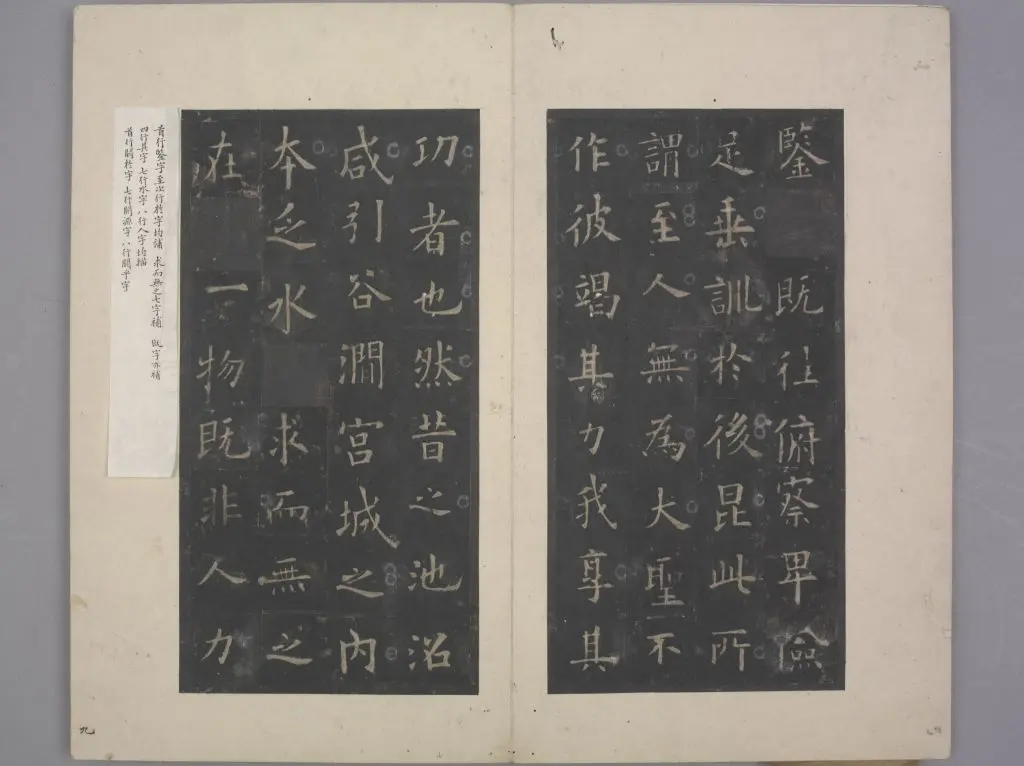 鑒既往俯察卑儉
足垂訓於後昆此所
謂至人無為大聖不
作彼竭其力我享其
功者也然昔之池沼
咸引谷澗宮城之內
本乏水求而無之
在一物既非人力
首行鑒字至次行於字均補 求而無之七字補 既字亦補
四行其字 七行水字 八行人字均描
首行闕於字 七行闕源字 八行闕乎字
九